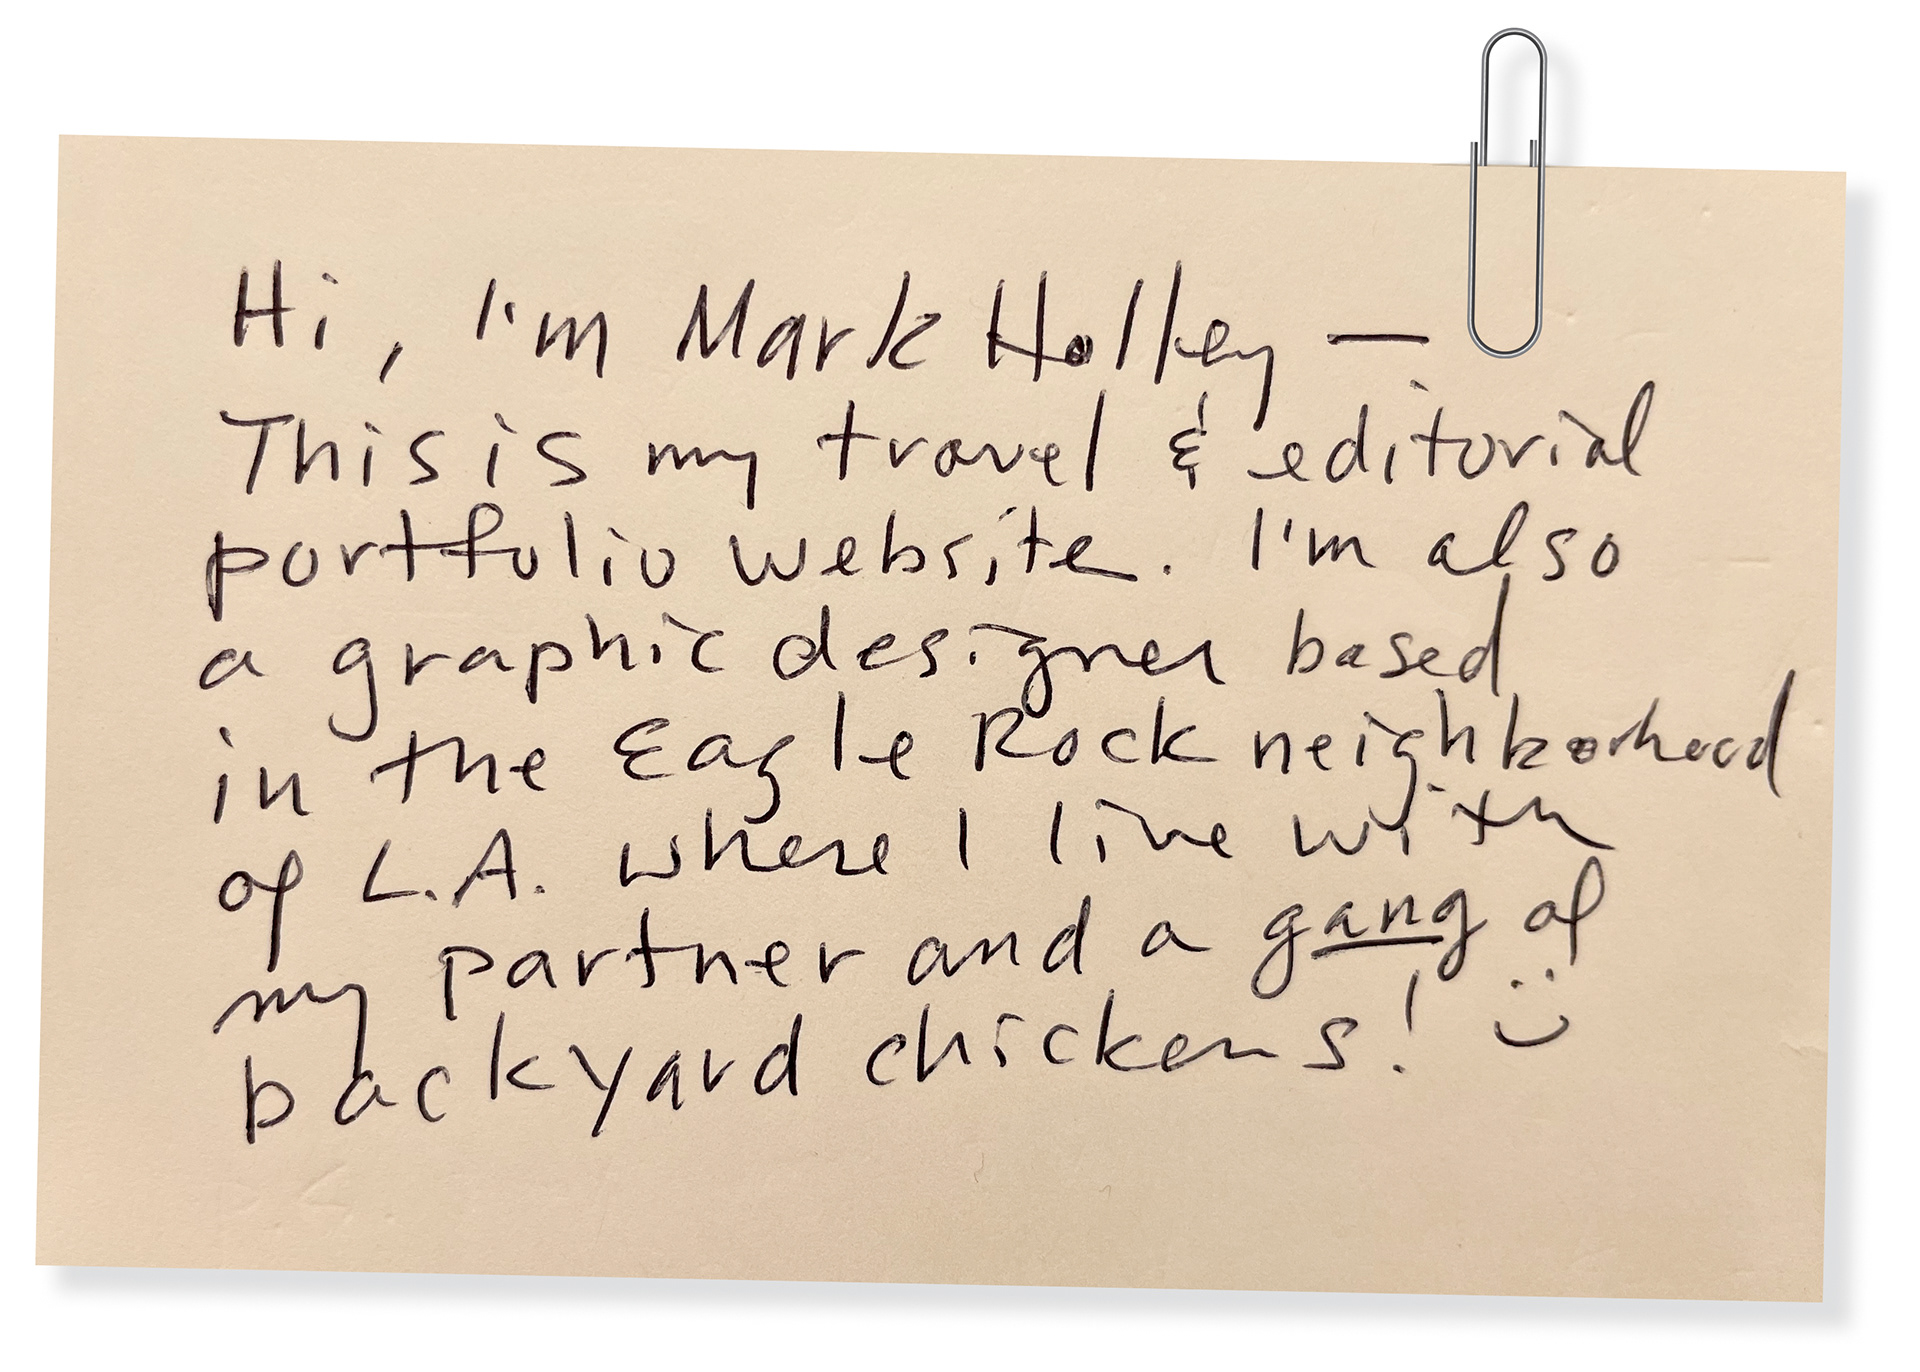 Hi, I'm Mark Holley —
This is my travel & editorial
portfolio website. I'm also
a graphic designer based
in the Eagle Rock neighborhood
of L.A. where I live with
my partner and a gang of
backyard chickens! :)